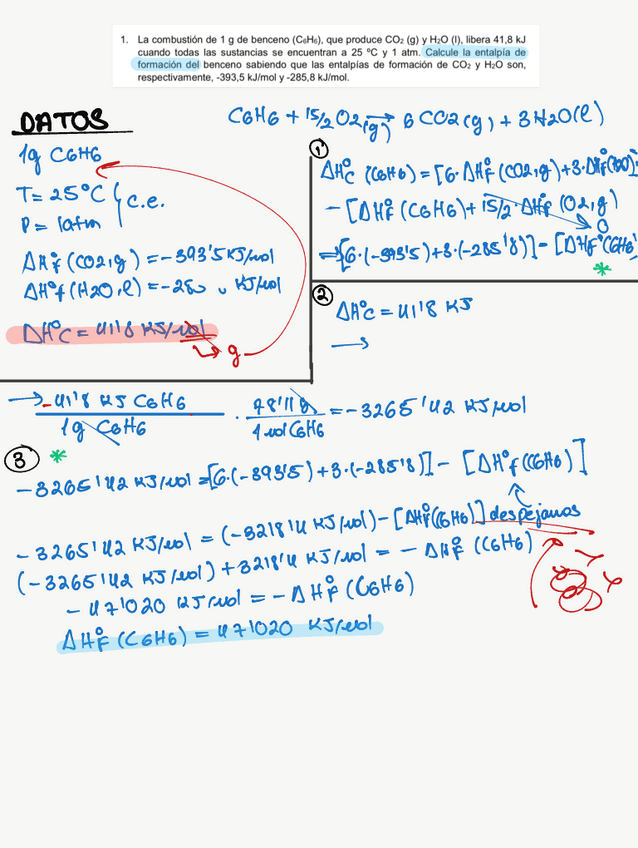 1. La combustión de 1 g de benceno (C₆H₆), que produce CO₂ (g) y H₂O (l), libera 41,8 kJ
cuando todas las sustancias se encuentran a 25 ºC y 1 atm. Calcule la entalpía de
formación del benceno sabiendo que las entalpías de formación de CO₂ y H₂O son,
respectivamente, -393,5 kJ/mol y -285,8 kJ/mol.
C6H6 + 15/2 O2(g) → 6 CO2(g) + 3 H2O(l)
DATOS
1g C6H6
T = 25°C
P = 1atm
c.e.
ΔH°f (CO2,g) = -393'5 KJ/mol
ΔH°f (H2O,l) = -28 KJ/mol
ΔH°C = 41'8 KJ/mol
→ g
1
ΔH°C (C6H6) = [6·ΔH°f (CO2,g) + 3·ΔH°f (H2O)]
- [ΔH°f (C6H6) + 15/2·ΔH°f (O2,g)
0
⇒ [6·(-393'5) + 3·(-285'8)] - [ΔH°f (C6H6)
*
2
ΔH°C = 41'8 KJ
→
→ -41'8 KJ C6H6 / 1g C6H6 · 78'11 g / 1 mol C6H6 = -3265'42 KJ/mol
3 *
-3265'42 KJ/mol = [6·(-393'5) + 3·(-285'8)] - [ΔH°f (C6H6)]
despejamos
-3265'42 KJ/mol = (-3218'4 KJ/mol) - [ΔH°f (C6H6)]
(-3265'42 KJ/mol) + 3218'4 KJ/mol = - ΔH°f (C6H6)
- 47'1020 KJ/mol = - ΔH°f (C6H6)
ΔH°f (C6H6) = 47'1020 KJ/mol